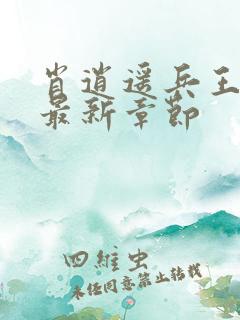 肖逍遥兵王
最新章节
四维虫
未经同意禁止转载